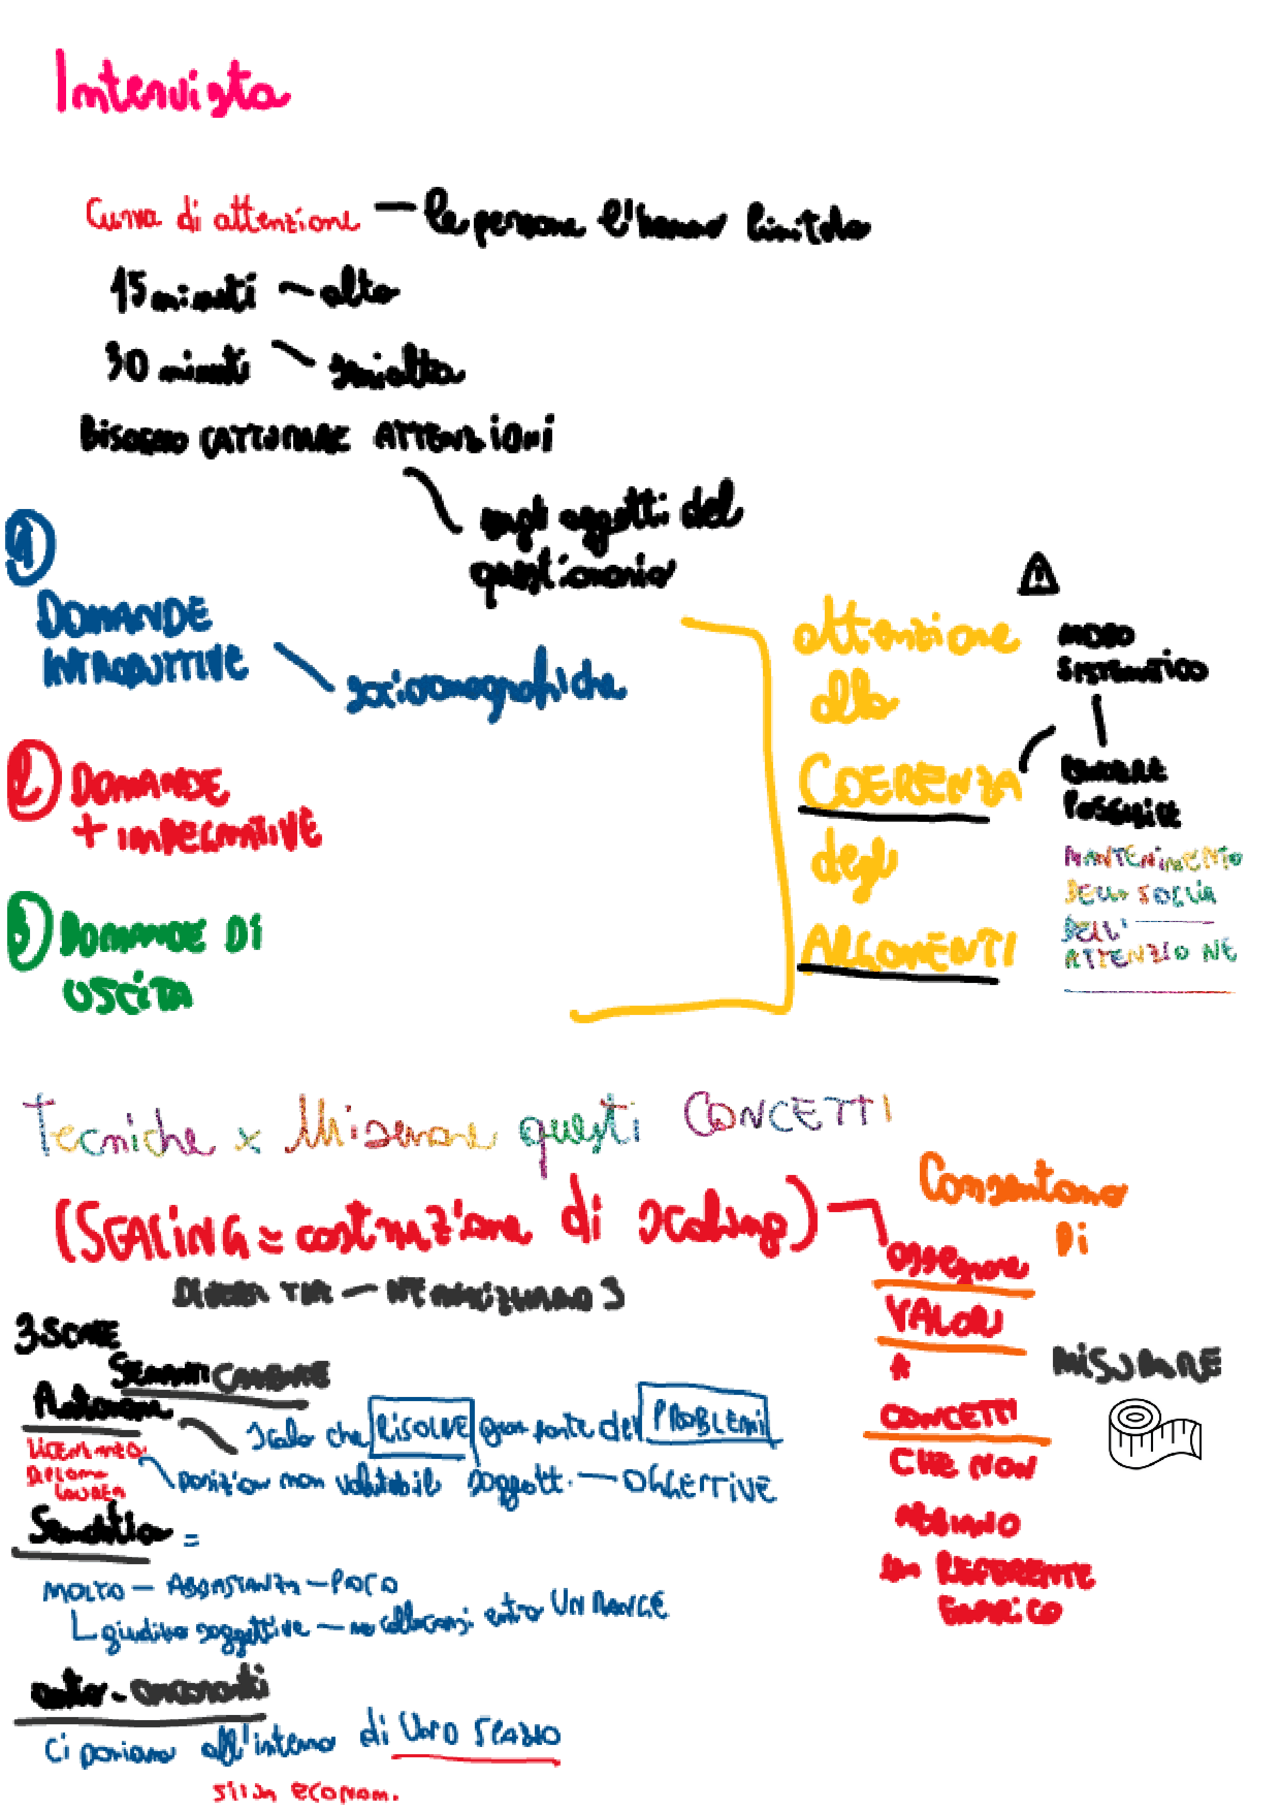 Intervista
Curva di attenzione — le persone l'hanno limitata
15 minuti — alta
30 minuti — semialta
BISOGNO CATTURARE ATTENZIONI
sugli oggetti del
questionario
1
DOMANDE
INTRODUTTIVE
sociomografiche
2 DOMANDE
+ IMPEGNATIVE
3 DOMANDE DI
USCITA
attenzione
alla
COERENZA
degli
ARGOMENTI
MODO
SISTEMATICO
RENDERE
POSSIBILE
MANTENIMENTO
DELLA SOGLIA
DELL'
ATTENZIONE
Tecniche x Misurare questi CONCETTI
(SCALING = costruzione di scaling)
Consentono
DI
assegnare
VALORI
A
CONCETTI
CHE NON
ABBIANO
un REFERENTE
EMPIRICO
MISURARE
3 SCALE
SEMANTI CAMBIARE
Autonoma
Scala che RISOLVE gran parte dei PROBLEMI
posizioni non valutabili soggett. — OGGETTIVE
LICENZA MEDIA
DIPLOMA
LAUREA
Semantica =
MOLTO — ABBASTANZA — POCO
giudizio soggettive — collocarsi entro UN RANGE
auto-ancoranti
Ci poniamo all'interno di UNO SPAZIO
sit in econom.